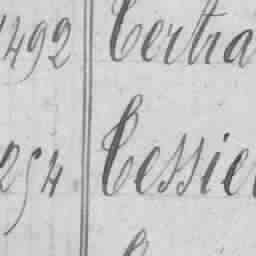 1492 Tertra
254 Tessie